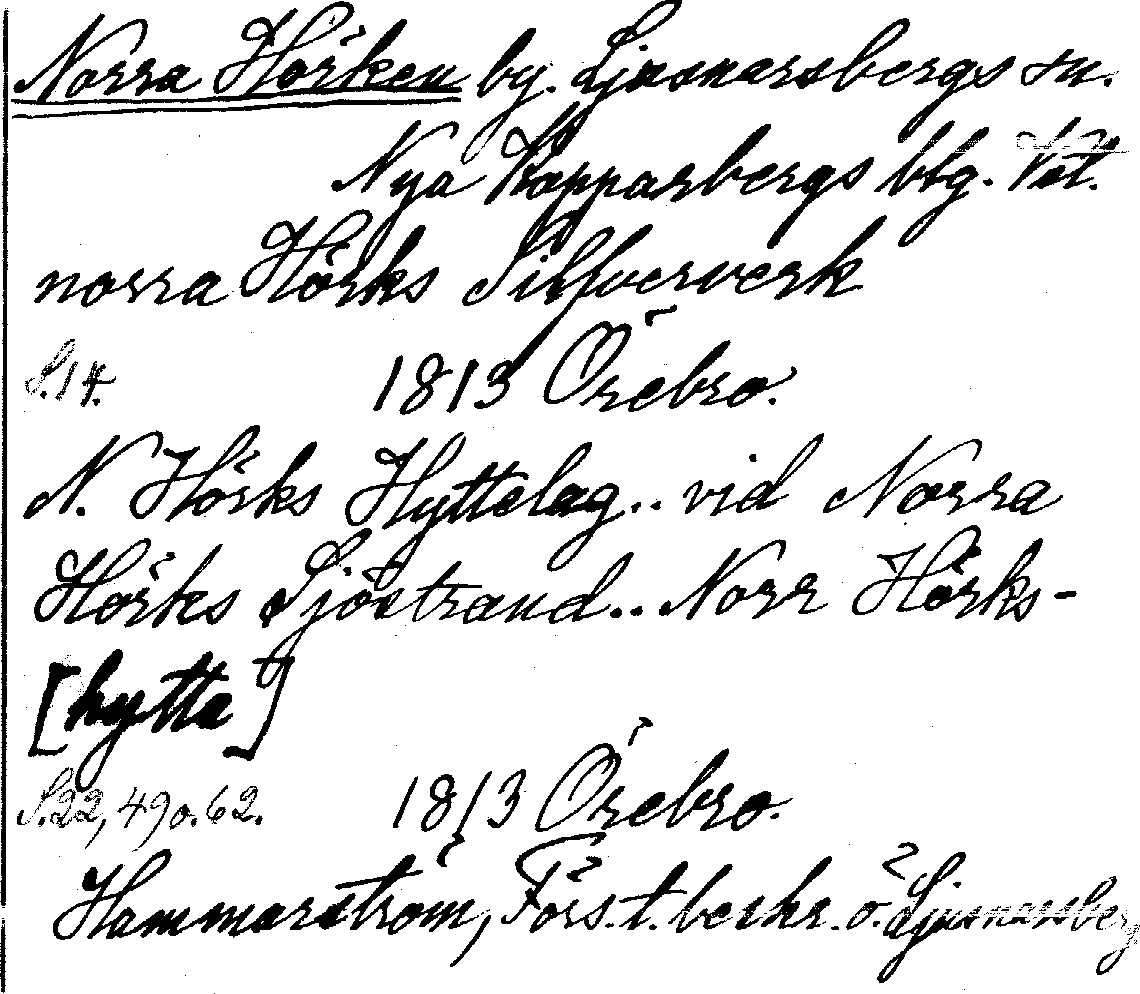 Norra Hörken by. Ljusnarsbergs sn.
Nya Kopparbergs blg. Vst.
norra Hörks Silfververk
S. 14. 1813 Örebro.
N. Hörks Hyttelag.. vid Norra
Hörks Sjöstrand.. Norr Hörks-
[hytta]
S. 22, 49 o. 62. 1813 Örebro.
Hammarström, Förs. t. beskr. ö. Ljusnarsberg